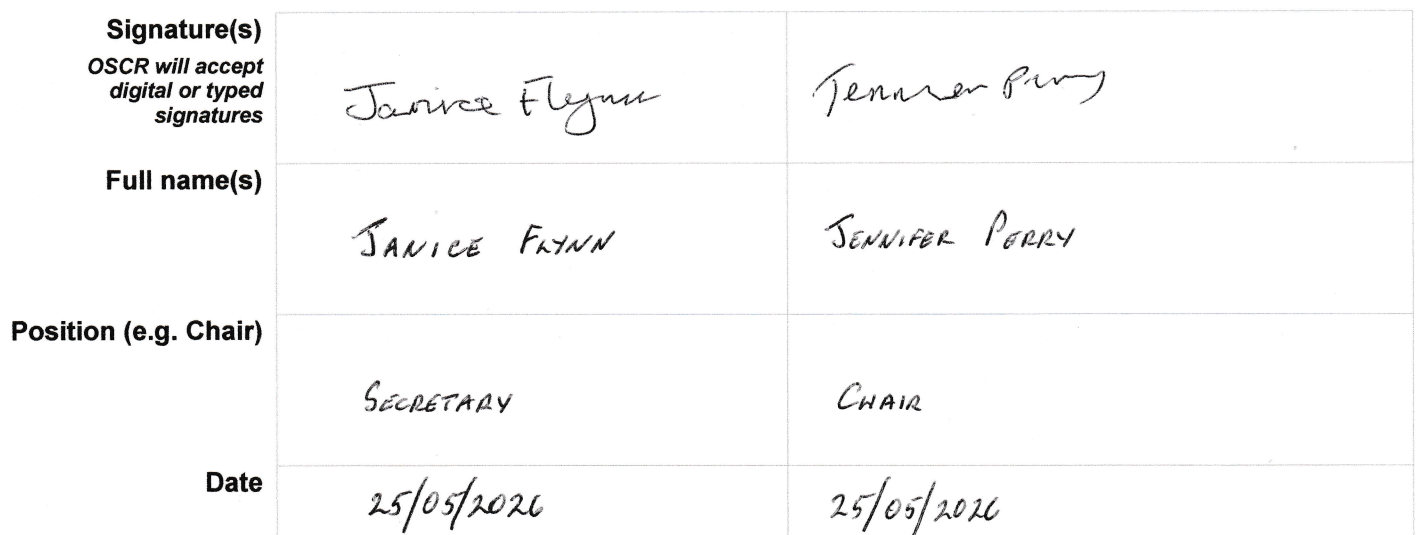 Signature(s)
OSCR will accept
digital or typed
signatures
Janice Flynn
Jennifer Perry
Full name(s)
JANICE FLYNN
JENNIFER PERRY
Position (e.g. Chair)
SECRETARY
CHAIR
Date
25/05/2026
25/05/2026